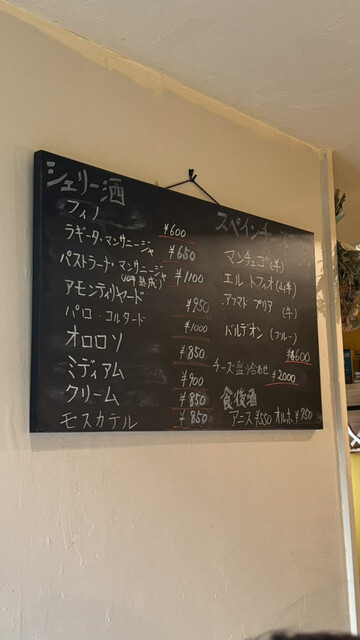 シェリー酒
フィノ ¥600
ラギータ・マンサニージャ ¥650
パストラーナ・マンサニージャ ¥1100
アモンティリャード ¥950
パロ・コルタード ¥1000
オロロソ ¥850
ミディアム ¥900
クリーム ¥850
モスカテル ¥850
スペインチーズ
マンチェゴ(羊)
エル トフィオ(山羊)
プリア (牛)
バルデオン (ブルー)
¥600
チーズ盛り合わせ ¥2000
食後酒
アニス ¥550 オルホ ¥750